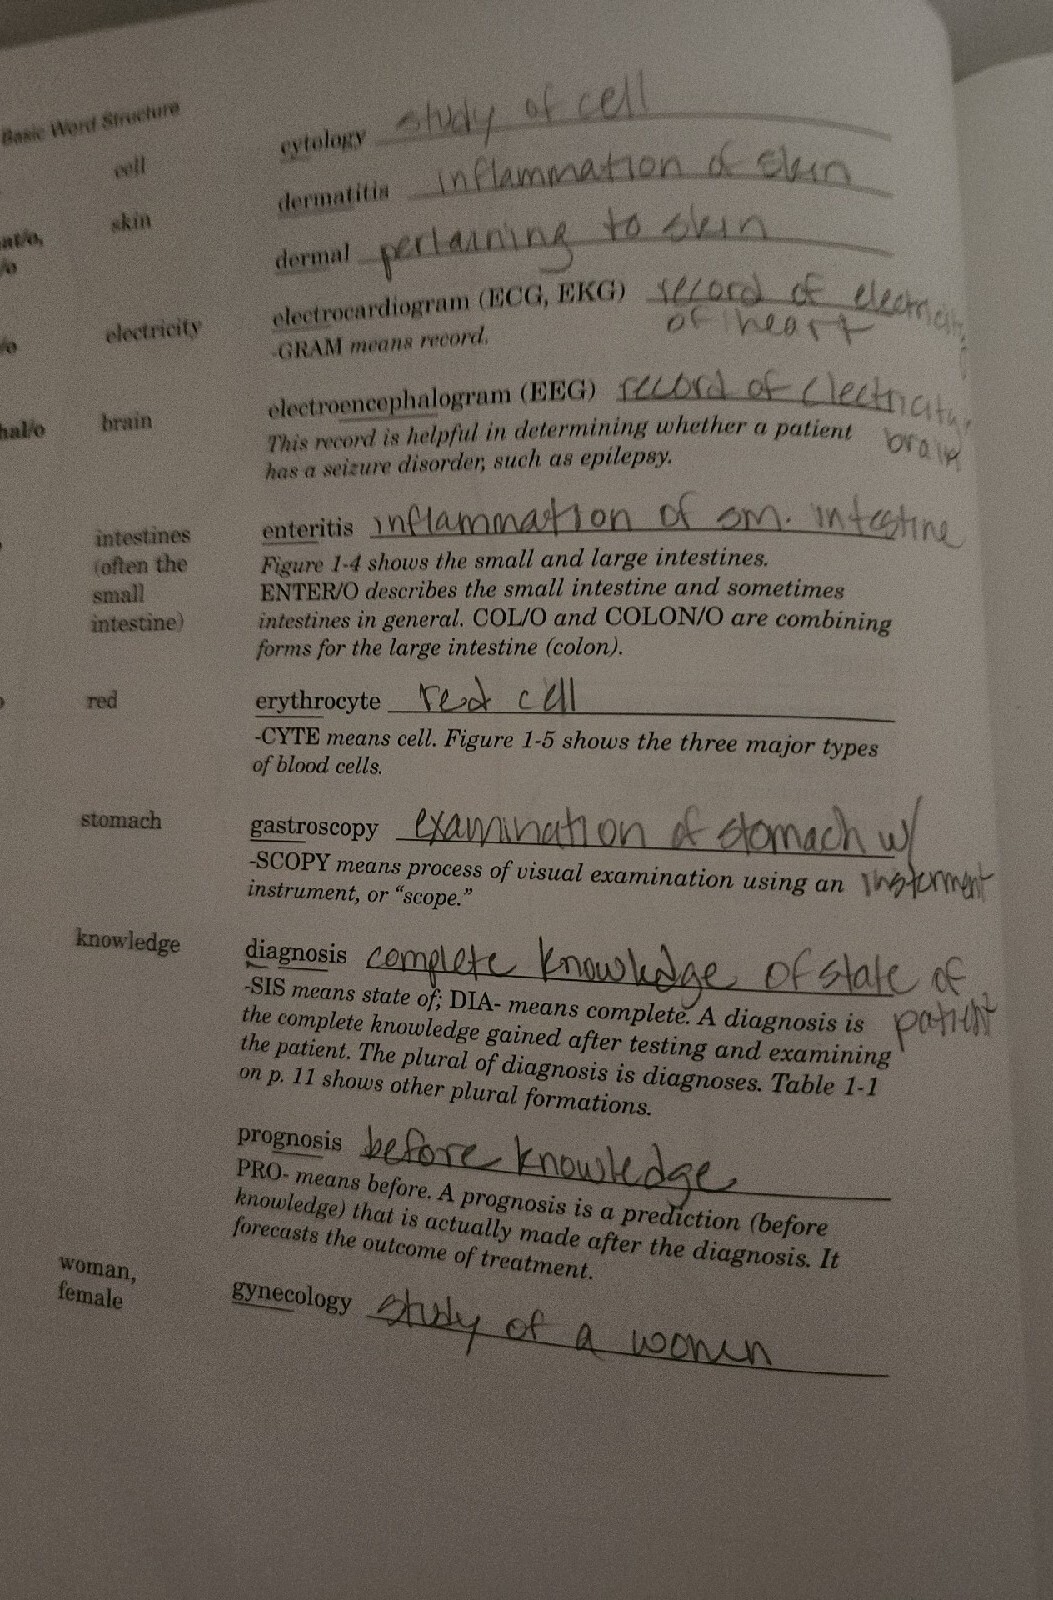 Basic Word Structure
cell cytology study of cell
skin dermatitis inflammation of skin
at/o,
/o
dermal pertaining to skin
/o electricity electrocardiogram (ECG, EKG) record of electricity
of heart
-GRAM means record.
hal/o brain electroencephalogram (EEG) record of electricity
brain
This record is helpful in determining whether a patient
has a seizure disorder, such as epilepsy.
intestines
(often the
small
intestine)
enteritis inflammation of sm. intestine
Figure 1-4 shows the small and large intestines.
ENTER/O describes the small intestine and sometimes
intestines in general. COL/O and COLON/O are combining
forms for the large intestine (colon).
red erythrocyte red cell
-CYTE means cell. Figure 1-5 shows the three major types
of blood cells.
stomach gastroscopy examination of stomach w/
insterment
-SCOPY means process of visual examination using an
instrument, or "scope."
knowledge diagnosis complete knowledge of state of
patient
-SIS means state of; DIA- means complete. A diagnosis is
the complete knowledge gained after testing and examining
the patient. The plural of diagnosis is diagnoses. Table 1-1
on p. 11 shows other plural formations.
prognosis before knowledge
PRO- means before. A prognosis is a prediction (before
knowledge) that is actually made after the diagnosis. It
forecasts the outcome of treatment.
woman,
female
gynecology study of a women